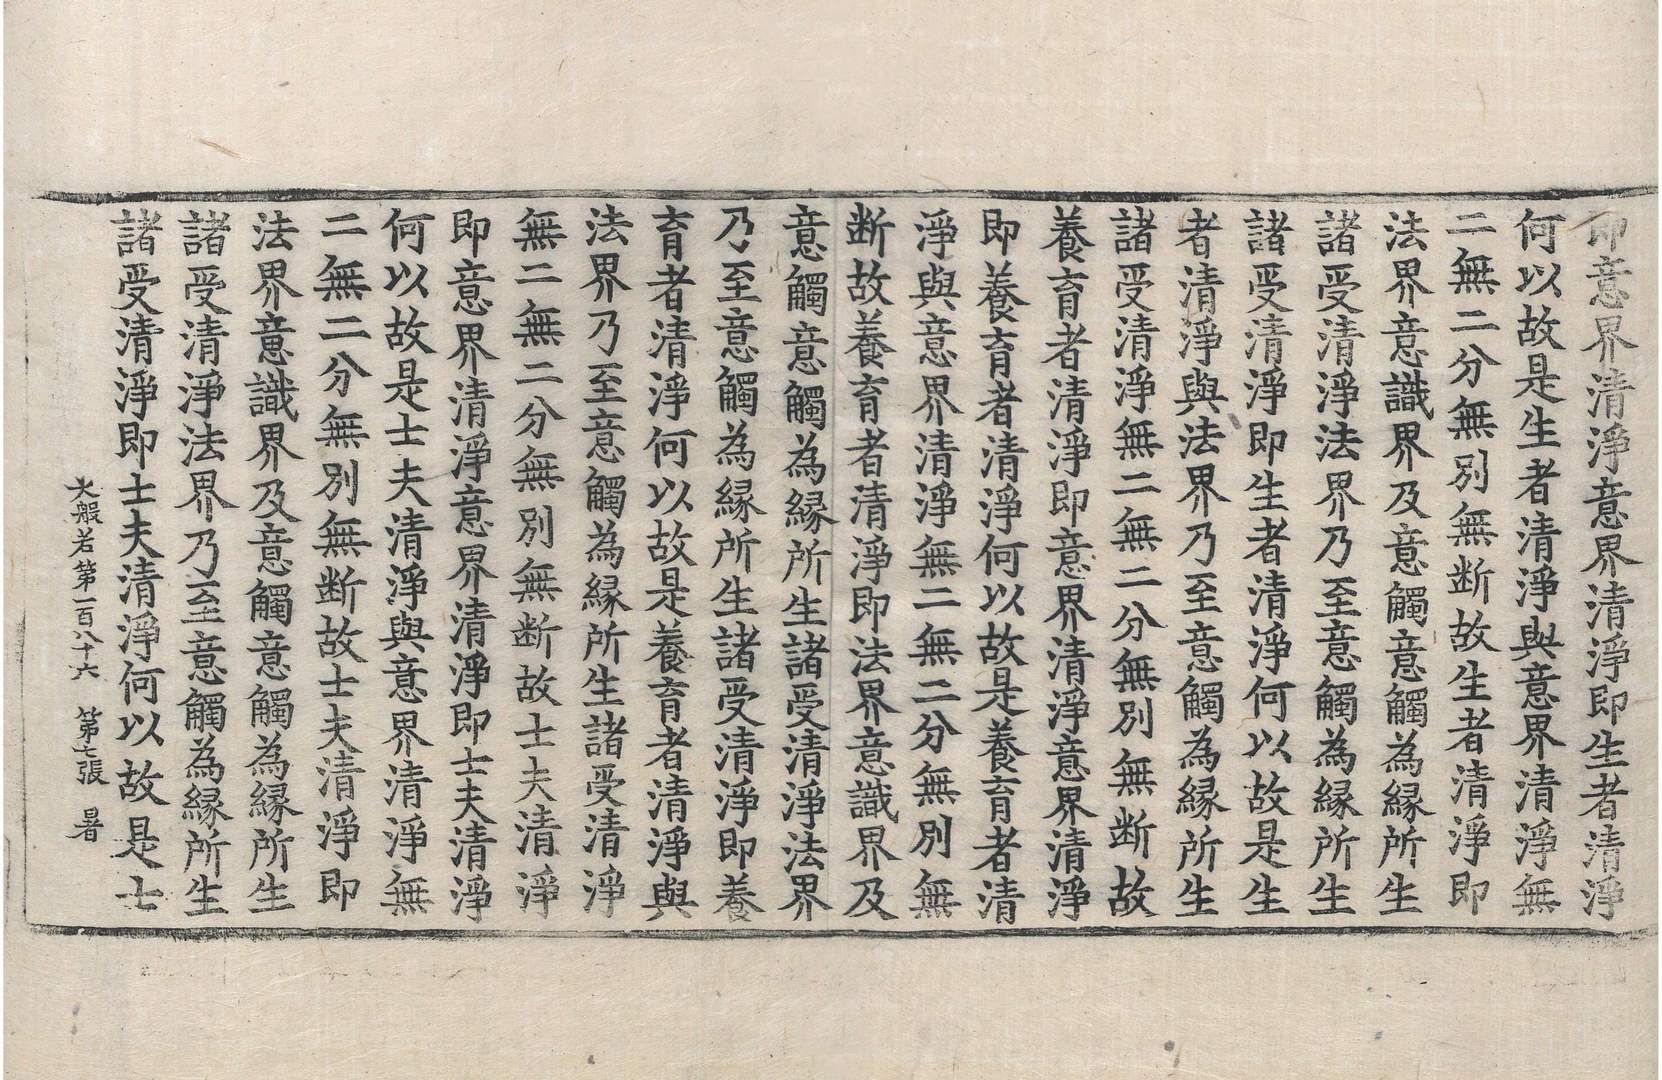 即意界清淨意界清淨即生者清淨
何以故是生者清淨與意界清淨無
二無二分無別無断故生者清淨即
法界意識界及意觸意觸為縁所生
諸受清淨法界乃至意觸為縁所生
諸受清淨即生者清淨何以故是生
者清淨與法界乃至意觸為縁所生
諸受清淨無二無二分無別無断故
養育者清淨即意界清淨意界清淨
即養育者清淨何以故是養育者清
淨與意界清淨無二無二分無別無
断故養育者清淨即法界意識界及
意觸意觸為縁所生諸受清淨法界
乃至意觸為縁所生諸受清淨即養
育者清淨何以故是養育者清淨與
法界乃至意觸為縁所生諸受清淨
無二無二分無別無断故士夫清淨
即意界清淨意界清淨即士夫清淨
何以故是士夫清淨與意界清淨無
二無二分無別無断故士夫清淨即
法界意識界及意觸意觸為縁所生
諸受清淨法界乃至意觸為縁所生
諸受清淨即士夫清淨何以故是士
大般若第一百八十六　第七張　暑